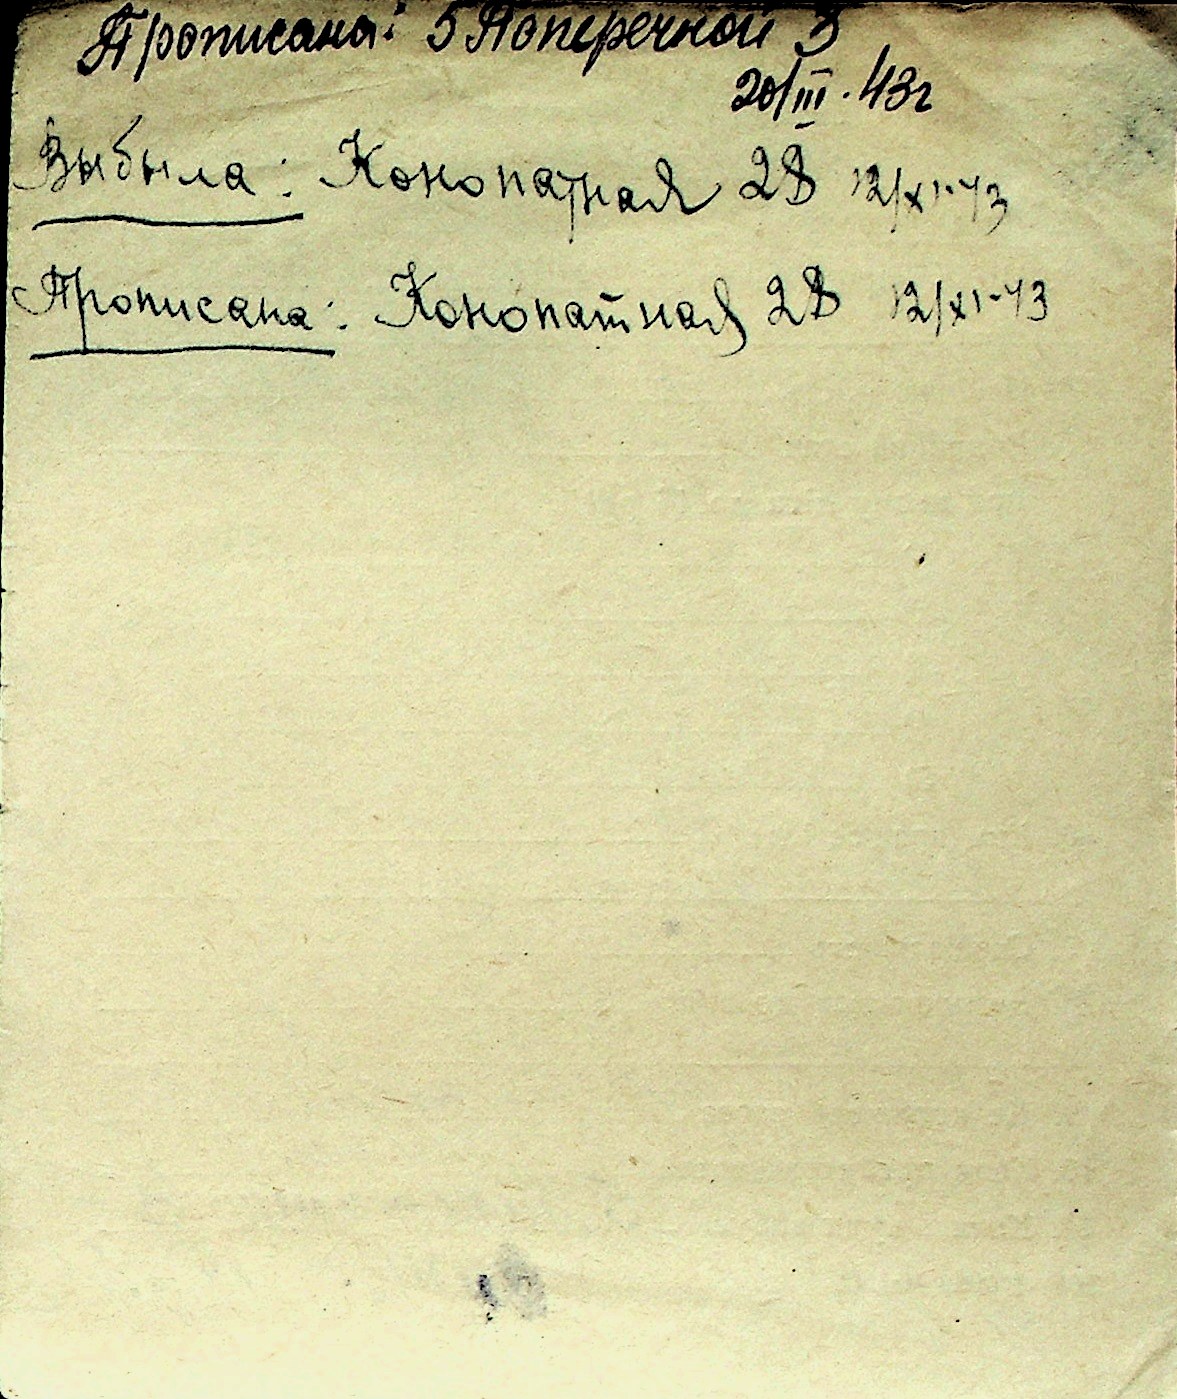 Прописана: 5 Поперечной 3
20/III. 43г
Выбыла: Конопатная 28 12/XI-43
Прописана: Конопатная 28 12/XI-43